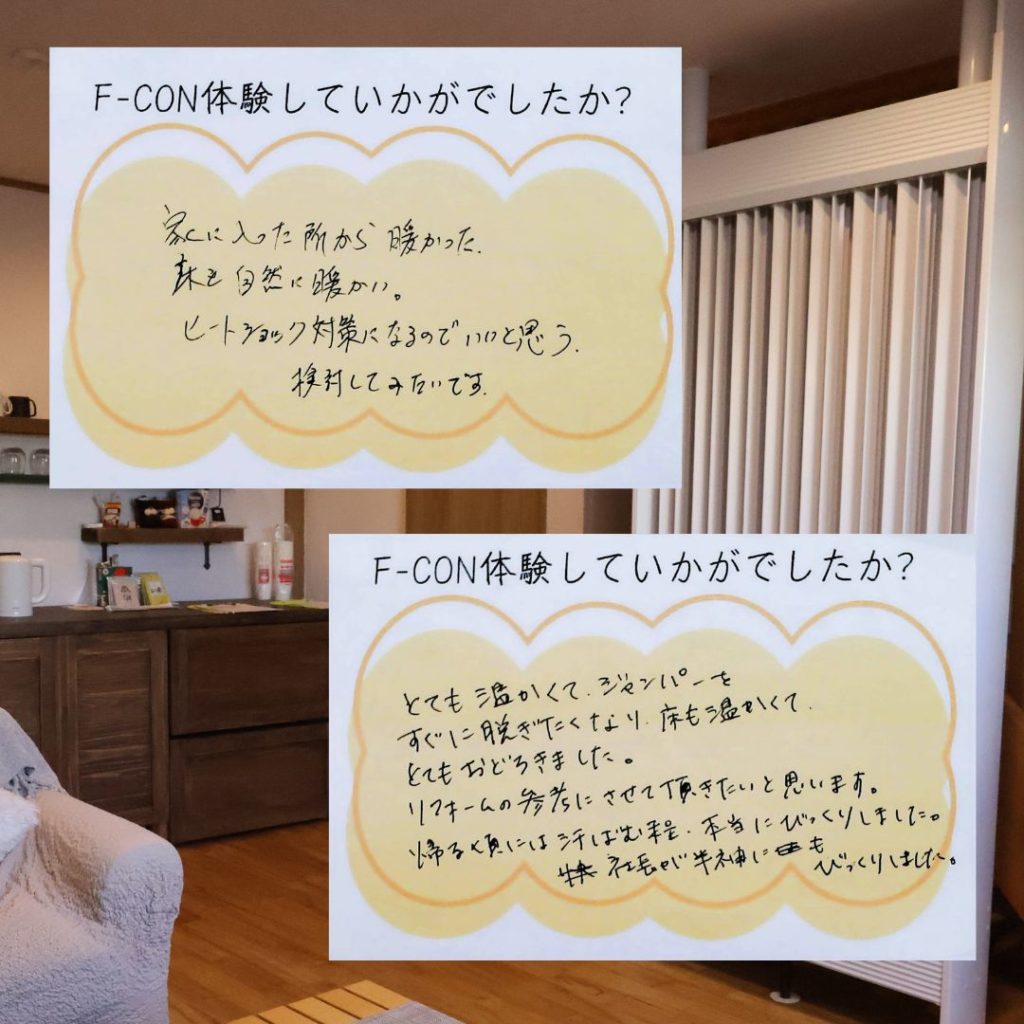 F-CON体験していかがでしたか?
家に入った所から暖かった.
床も自然に暖かい。
ヒートショック対策になるのでいいと思う.
検討してみたいです.
F-CON体験していかがでしたか?
とても温かくて.ジャンパーを
すぐに脱ぎたくなり.床も温かくて.
とてもおどろきました。
リフォームの参考にさせて頂きたいと思います。
帰る頃には汗ばむ程.本当にびっくりしました。
社長が半袖にも
びっくりしました。